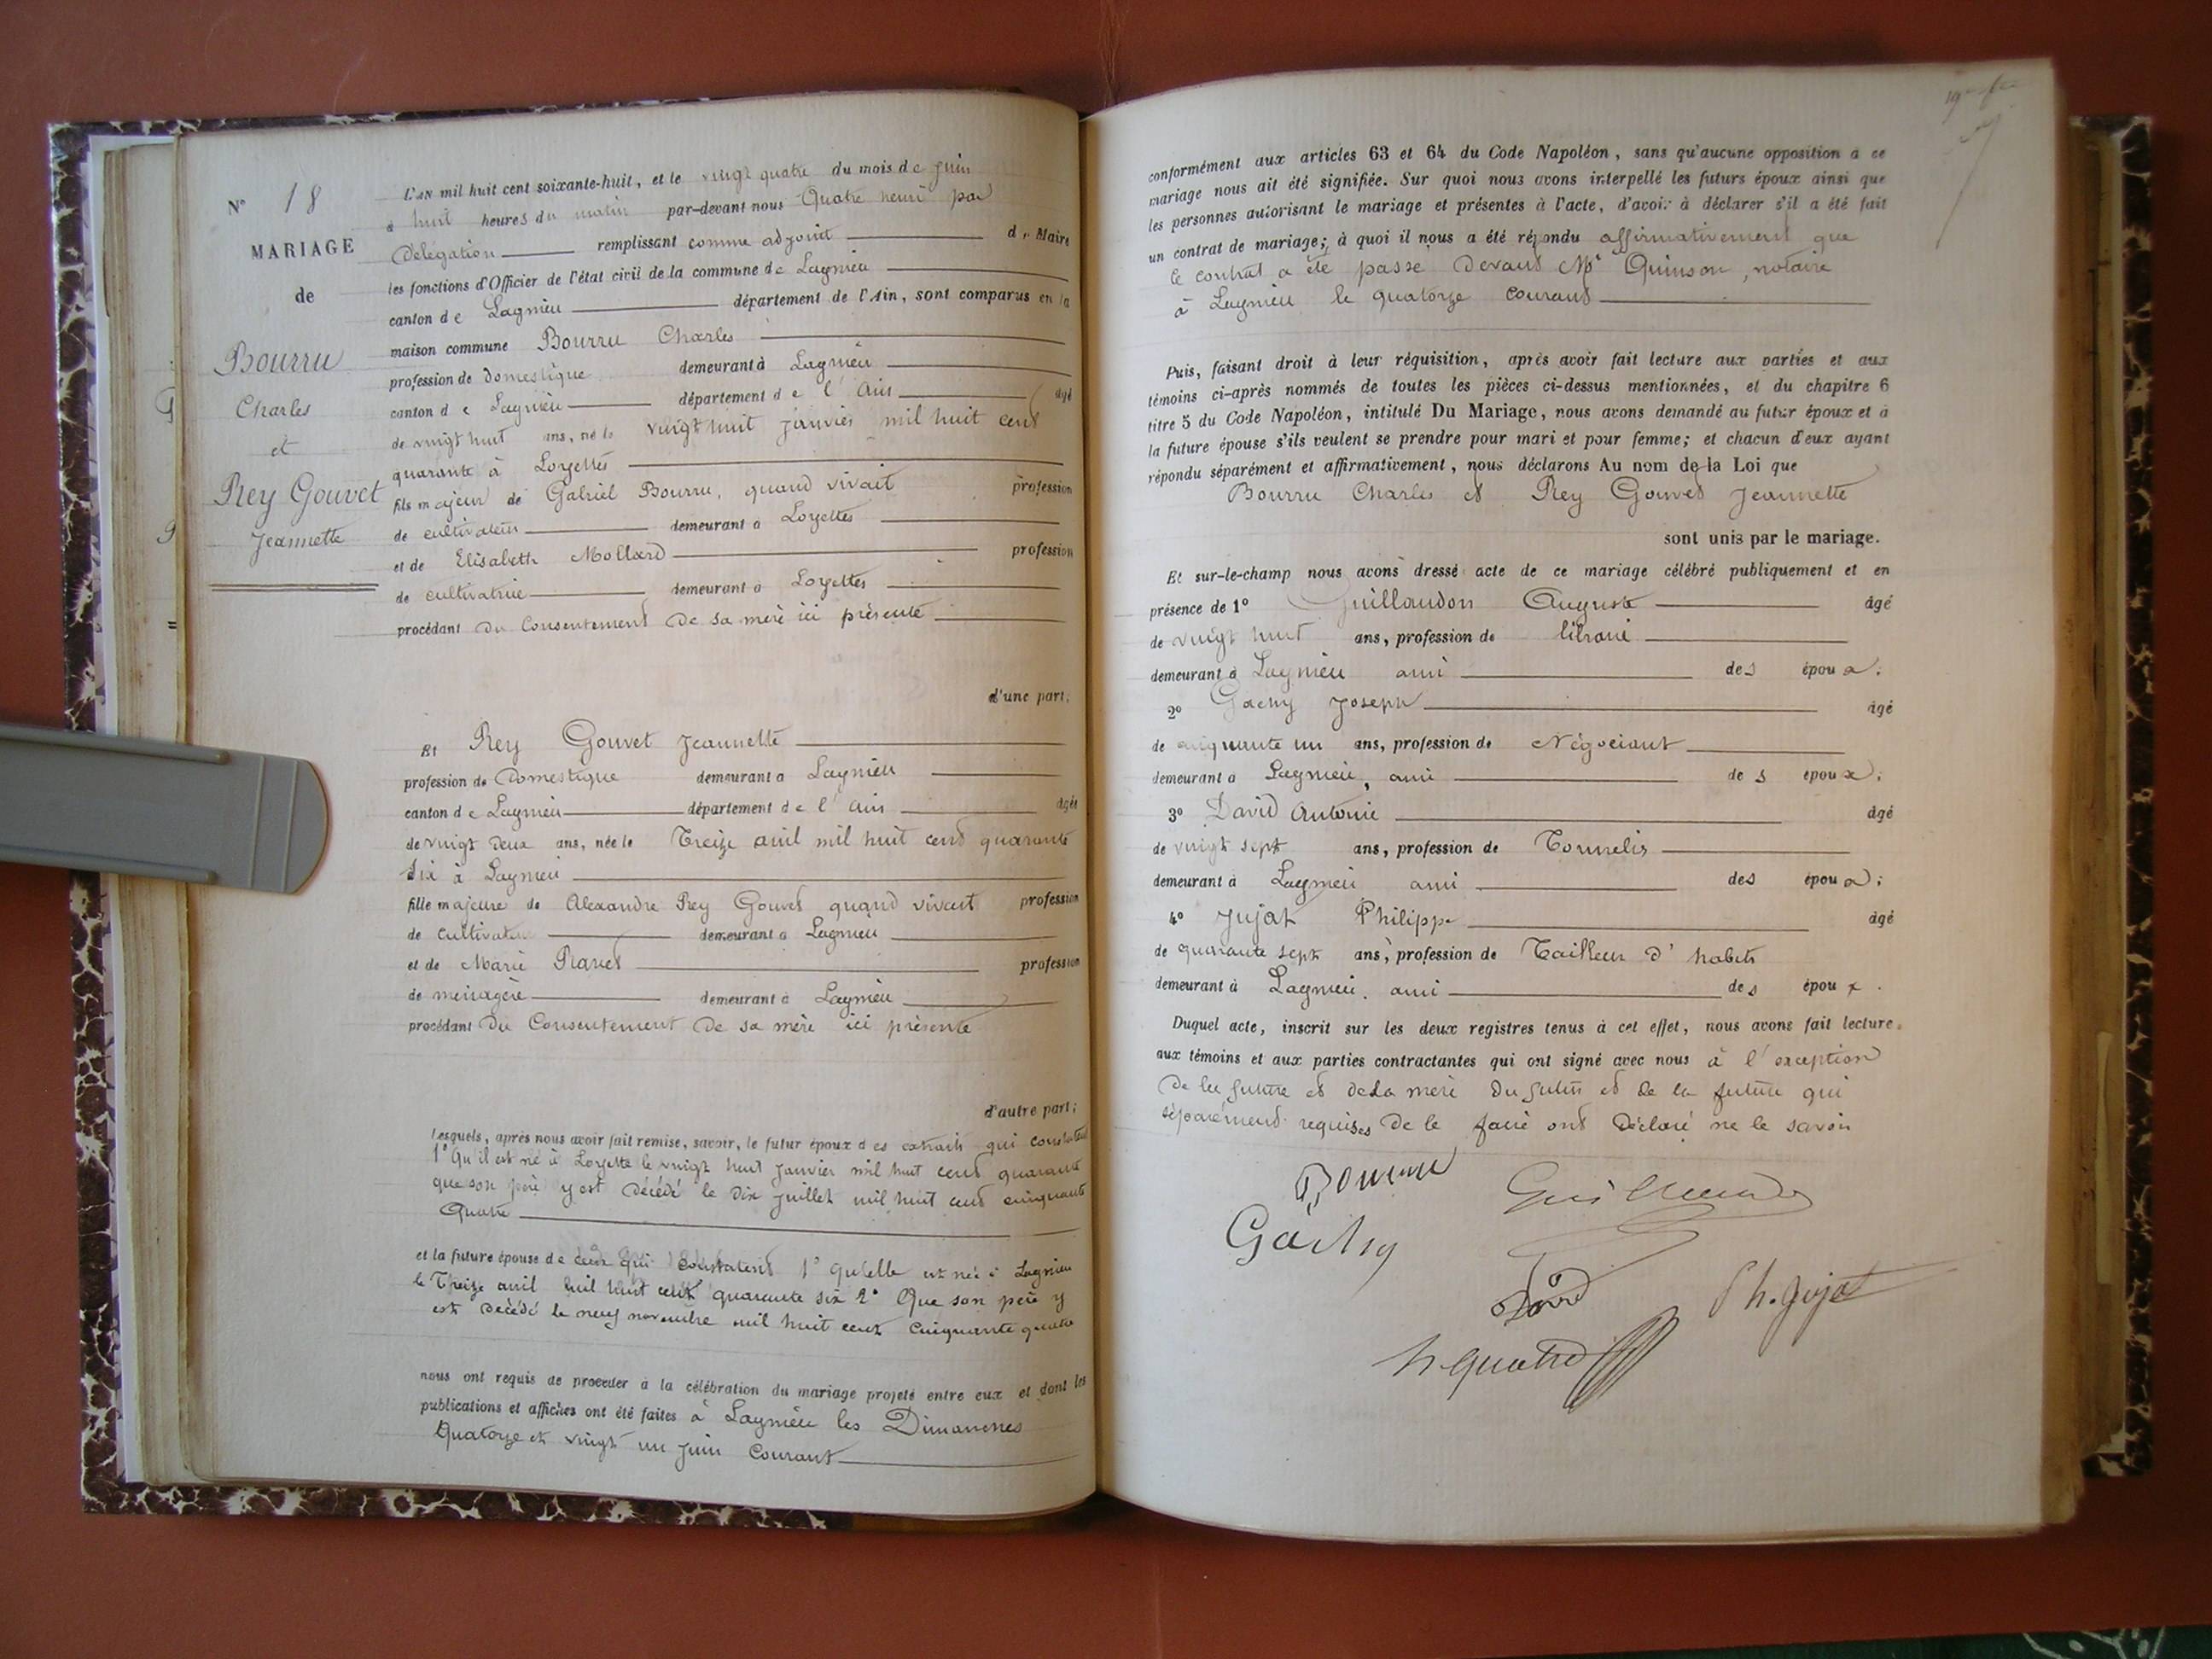 N° 18
MARIAGE
de
Bourru
Charles
et
Rey Gouvet
Jeannette
L'AN mil huit cent soixante-huit, et le vingt quatre du mois de Juin
à huit heures du matin par-devant nous Quatre henri par
délégation remplissant comme adjoint du Maire
les fonctions d'Officier de l'état civil de la commune de Lagnieu
canton de Lagnieu département de l'Ain, sont comparus en la
maison commune Bourru Charles
profession de domestique demeurant à Lagnieu
canton de Lagnieu département de l'Ain âgé
de vingt huit ans, né le vingt huit janvier mil huit cent
quarante à Loyettes
fils majeur de Gabriel Bourru, quand vivait profession
de cultivateur demeurant à Loyettes
et de Elisabeth Mollard profession
de cultivatrice demeurant à Loyettes
procédant du Consentement de sa mère ici présente
d'une part;
Et Rey Gouvet Jeannette
profession de Domestique demeurant à Lagnieu
canton de Lagnieu département de l'Ain âgée
de vingt deux ans, née le Treize avril mil huit cent quarante
six à Lagnieu
fille majeure de Alexandre Rey Gouvet quand vivait profession
de cultivateur demeurant à Lagnieu
et de Marie profession
de ménagère demeurant à Lagnieu
procédant du Consentement de sa mère ici présente
d'autre part;
Lesquels, après nous avoir fait remise, savoir, le futur époux des extraits qui constatent
1° Qu'il est né à Loyette le vingt huit Janvier mil huit cent quarante
que son père y est décédé le dix juillet mil huit cent cinquante
Quatre
et la future épouse de ceux qui constatent 1° qu'elle est née à Lagnieu
le Treize avril mil huit cent quarante six 2° Que son père y
est décédé le neuf novembre mil huit cent cinquante quatre
nous ont requis de procéder à la célébration du mariage projeté entre eux et dont les
publications et affiches ont été faites à Lagnieu les Dimanches
Quatorze et vingt un juin Courant
conformément aux articles 63 et 64 du Code Napoléon, sans qu'aucune opposition à ce
mariage nous ait été signifiée. Sur quoi nous avons interpellé les futurs époux ainsi que
les personnes autorisant le mariage et présentes à l'acte, d'avoir à déclarer s'il a été fait
un contrat de mariage; à quoi il nous a été répondu affirmativement que
le contrat a été passé devant Me Quinson, notaire
à Lagnieu le quatorze courant
Puis, faisant droit à leur réquisition, après avoir fait lecture aux parties et aux
témoins ci-après nommés de toutes les pièces ci-dessus mentionnées, et du chapitre 6
titre 5 du Code Napoléon, intitulé Du Mariage, nous avons demandé au futur époux et à
la future épouse s'ils veulent se prendre pour mari et pour femme; et chacun d'eux ayant
répondu séparément et affirmativement, nous déclarons Au nom de la Loi que
Bourru Charles et Rey Gouvet Jeannette
sont unis par le mariage.
Et sur-le-champ nous avons dressé acte de ce mariage célébré publiquement et en
présence de 1° Guillaudon Auguste âgé
de vingt huit ans, profession de libraire
demeurant à Lagnieu ami des époux;
2° Gachy Joseph âgé
de cinquante un ans, profession de Négociant
demeurant à Lagnieu, ami des époux;
3° David Antoine âgé
de vingt sept ans, profession de Tonnelier
demeurant à Lagnieu ami des époux;
4° Jujat Philippe âgé
de quarante sept ans, profession de Tailleur d'habits
demeurant à Lagnieu, ami des époux.
Duquel acte, inscrit sur les deux registres tenus à cet effet, nous avons fait lecture
aux témoins et aux parties contractantes qui ont signé avec nous à l'exception
de la future et de la mère du futur et de la future qui
séparément requises de le faire ont déclaré ne le savoir
Bourru
Gachy
David
Ph. Jujat
h quatre